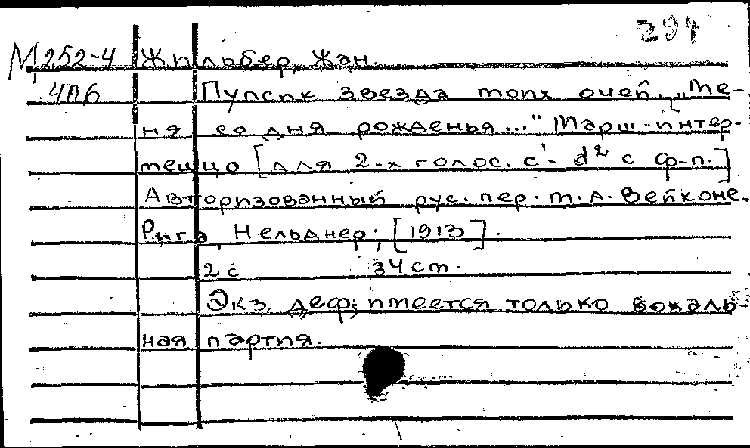 294
М252-4 Жильбер, Жан.
4П6 Пупсик звезда моих очей. "Ме-
ня со дня рожденья..." Марш-интер-
меццо [для 2-х голос. c¹- d² с ф-п.]
Авторизованный рус. пер. М.А. Вейконе.
Рига, Нельднер, [1913].
2 с 34 cm.
Экз. деф; имеется только вокаль-
ная партия.